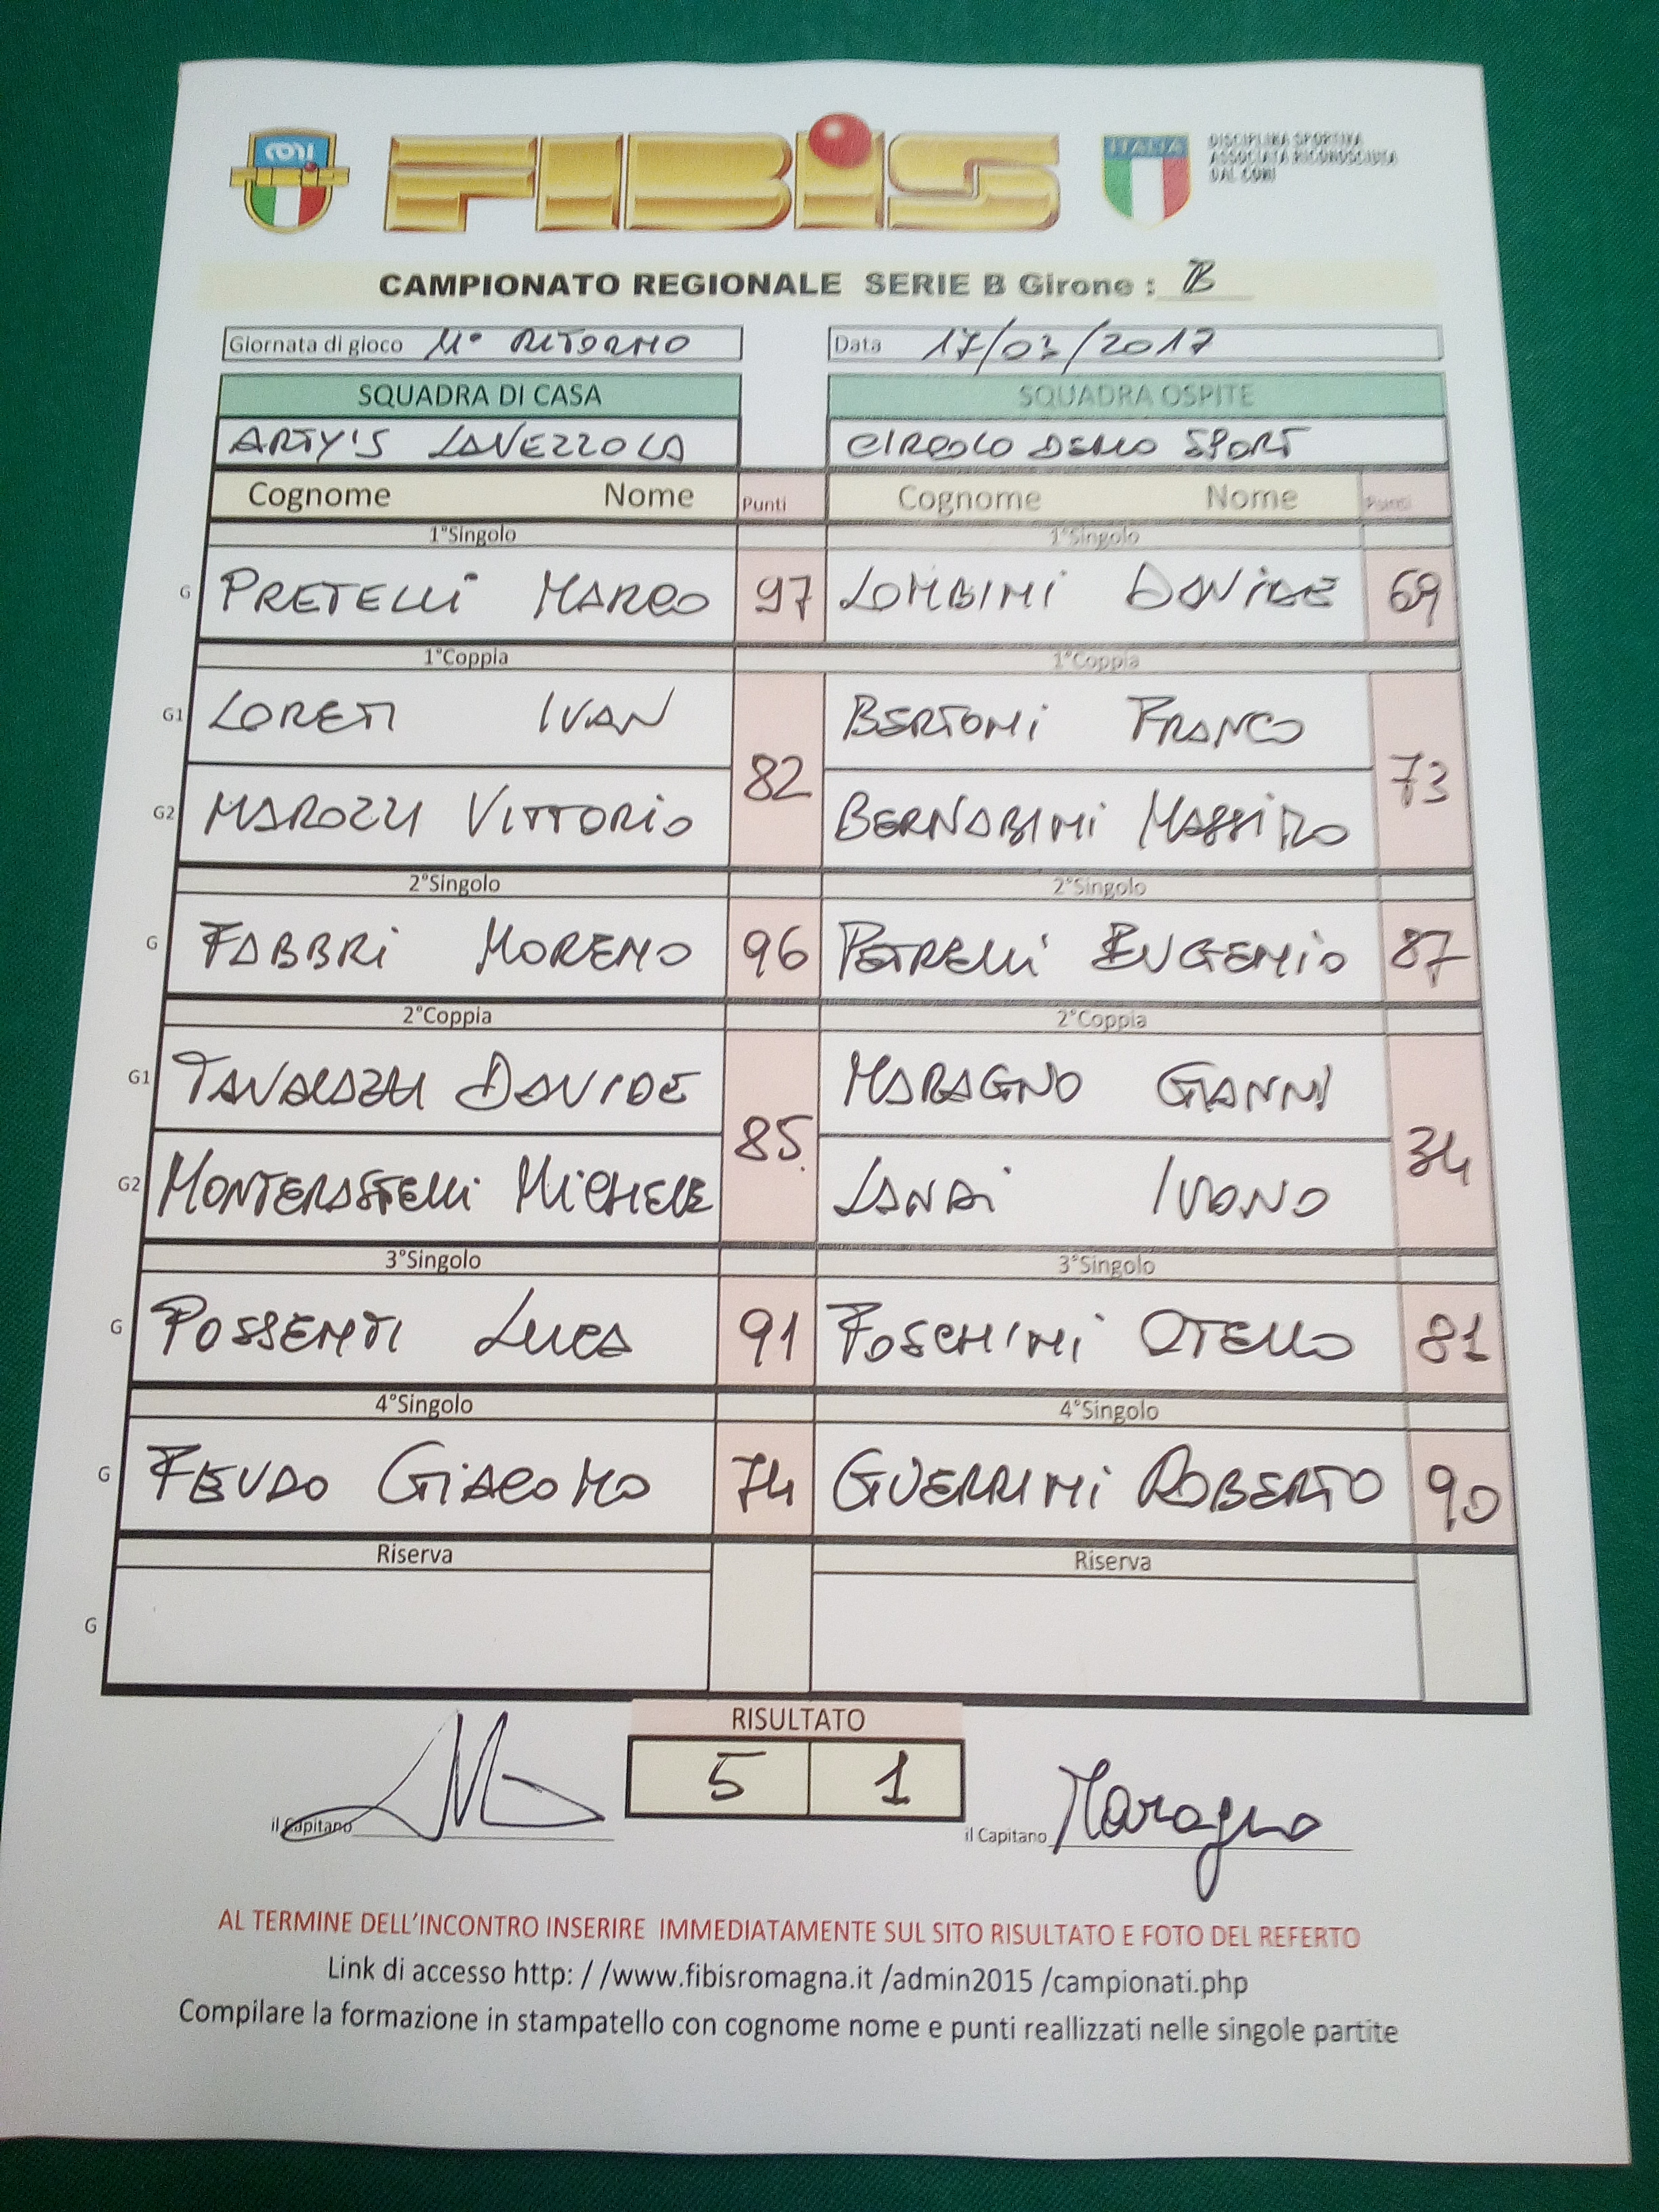 CONI
FIBIS
FIBIS
ITALIA
DISCIPLINA SPORTIVA
ASSOCIATA RICONOSCIUTA
DAL CONI
CAMPIONATO REGIONALE SERIE B Girone : B
Giornata di gioco 11° RITORNO Data 17/03/2017
SQUADRA DI CASA SQUADRA OSPITE
ARTY'S LAVEZZOLA CIRCOLO DEMO SPORT
Cognome Nome Punti Cognome Nome Punti
1°Singolo 1°Singolo
G PRETELLI MARCO 97 LOMBINI DAVIDE 69
1°Coppia 1°Coppia
G1 LORETI IVAN BERTONI FRANCO
82 73
G2 MAROZZI VITTORIO BERNABINI MASSIMO
2°Singolo 2°Singolo
G FABBRI MORENO 96 PETRELLI EUGENIO 87
2°Coppia 2°Coppia
G1 TAVALAZZI DAVIDE MARAGNO GIANNI
85 34
G2 MONTERASTELLI MICHELE IVANO
3°Singolo 3°Singolo
G POSSENTI LUCA 91 FOSCHINI OTELLO 81
4°Singolo 4°Singolo
G FEUDO GIACOMO 74 GUERRINI ROBERTO 90
Riserva Riserva
G
RISULTATO
5 1
il Capitano il Capitano Maragno
AL TERMINE DELL'INCONTRO INSERIRE IMMEDIATAMENTE SUL SITO RISULTATO E FOTO DEL REFERTO
Link di accesso http: / /www.fibisromagna.it /admin2015 /campionati.php
Compilare la formazione in stampatello con cognome nome e punti reallizzati nelle singole partite